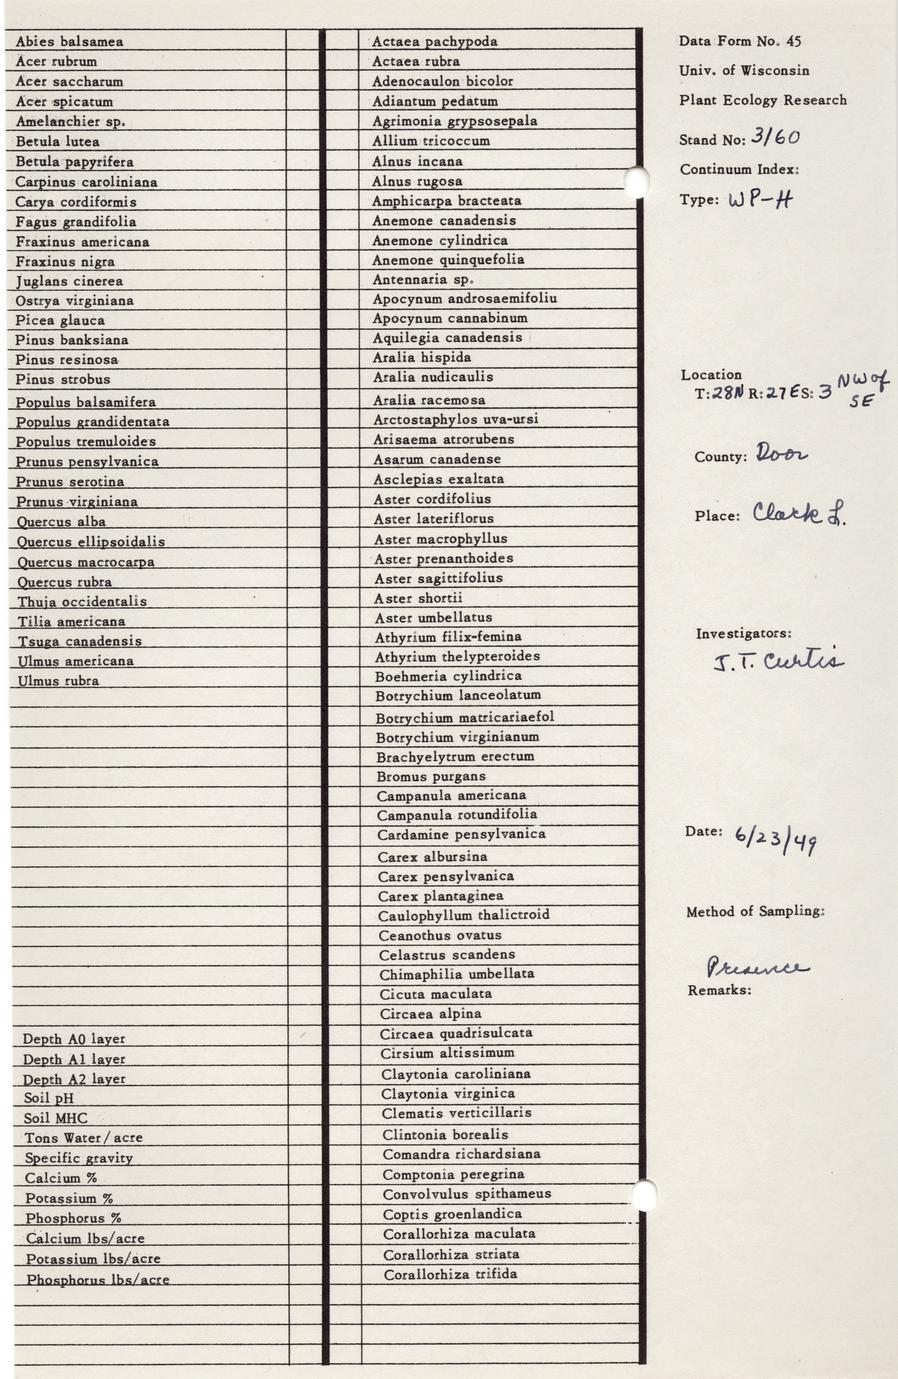 Abies balsamea
Acer rubrum
Acer saccharum
Acer spicatum
Amelanchier sp.
Betula lutea
Betula papyrifera
Carpinus caroliniana
Carya cordiformis
Fagus grandifolia
Fraxinus americana
Fraxinus nigra
Juglans cinerea
Ostrya virginiana
Picea glauca
Pinus banksiana
Pinus resinosa
Pinus strobus
Populus balsamifera
Populus grandidentata
Populus tremuloides
Prunus pensylvanica
Prunus serotina
Prunus virginiana
Quercus alba
Quercus ellipsoidalis
Quercus macrocarpa
Quercus rubra
Thuja occidentalis
Tilia americana
Tsuga canadensis
Ulmus americana
Ulmus rubra
Depth A0 layer
Depth A1 layer
Depth A2 layer
Soil pH
Soil MHC
Tons Water/acre
Specific gravity
Calcium %
Potassium %
Phosphorus %
Calcium lbs/acre
Potassium lbs/acre
Phosphorus lbs/acre
Actaea pachypoda
Actaea rubra
Adenocaulon bicolor
Adiantum pedatum
Agrimonia grypsosepala
Allium tricoccum
Alnus incana
Alnus rugosa
Amphicarpa bracteata
Anemone canadensis
Anemone cylindrica
Anemone quinquefolia
Antennaria sp.
Apocynum androsaemifoliu
Apocynum cannabinum
Aquilegia canadensis
Aralia hispida
Aralia nudicaulis
Aralia racemosa
Arctostaphylos uva-ursi
Arisaema atrorubens
Asarum canadense
Asclepias exaltata
Aster cordifolius
Aster lateriflorus
Aster macrophyllus
Aster prenanthoides
Aster sagittifolius
Aster shortii
Aster umbellatus
Athyrium filix-femina
Athyrium thelypteroides
Boehmeria cylindrica
Botrychium lanceolatum
Botrychium matricariaefol
Botrychium virginianum
Brachyelytrum erectum
Bromus purgans
Campanula americana
Campanula rotundifolia
Cardamine pensylvanica
Carex albursina
Carex pensylvanica
Carex plantaginea
Caulophyllum thalictroid
Ceanothus ovatus
Celastrus scandens
Chimaphilia umbellata
Cicuta maculata
Circaea alpina
Circaea quadrisulcata
Cirsium altissimum
Claytonia caroliniana
Claytonia virginica
Clematis verticillaris
Clintonia borealis
Comandra richardsiana
Comptonia peregrina
Convolvulus spithameus
Coptis groenlandica
Corallorhiza maculata
Corallorhiza striata
Corallorhiza trifida
Data Form No. 45
Univ. of Wisconsin
Plant Ecology Research
Stand No: 3160
Continuum Index:
Type: WP-H
Location
T:28N R:27E S:3 NW of SE
County: Door
Place: Clark L.
Investigators:
J.T. Curtis
Date: 6/23/49
Method of Sampling:
Presence
Remarks: